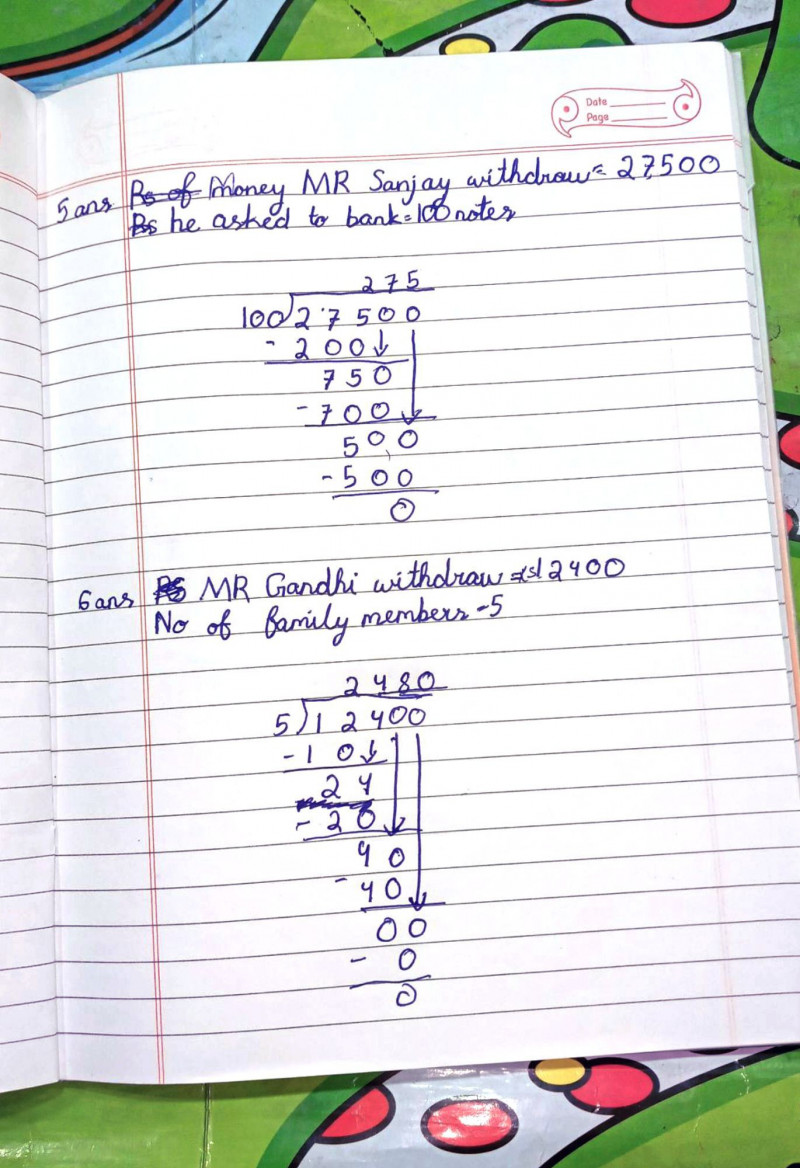 Date
Page
5 ans Rs of Money MR Sanjay withdraw = 27500
Rs he asked to bank = 100 notes
275
100)27500
- 200
750
- 700
500
- 500
0
6 ans MR Gandhi withdraw = 12400
No of family members - 5
2480
5)12400
- 10
24
- 20
40
- 40
00
- 0
0